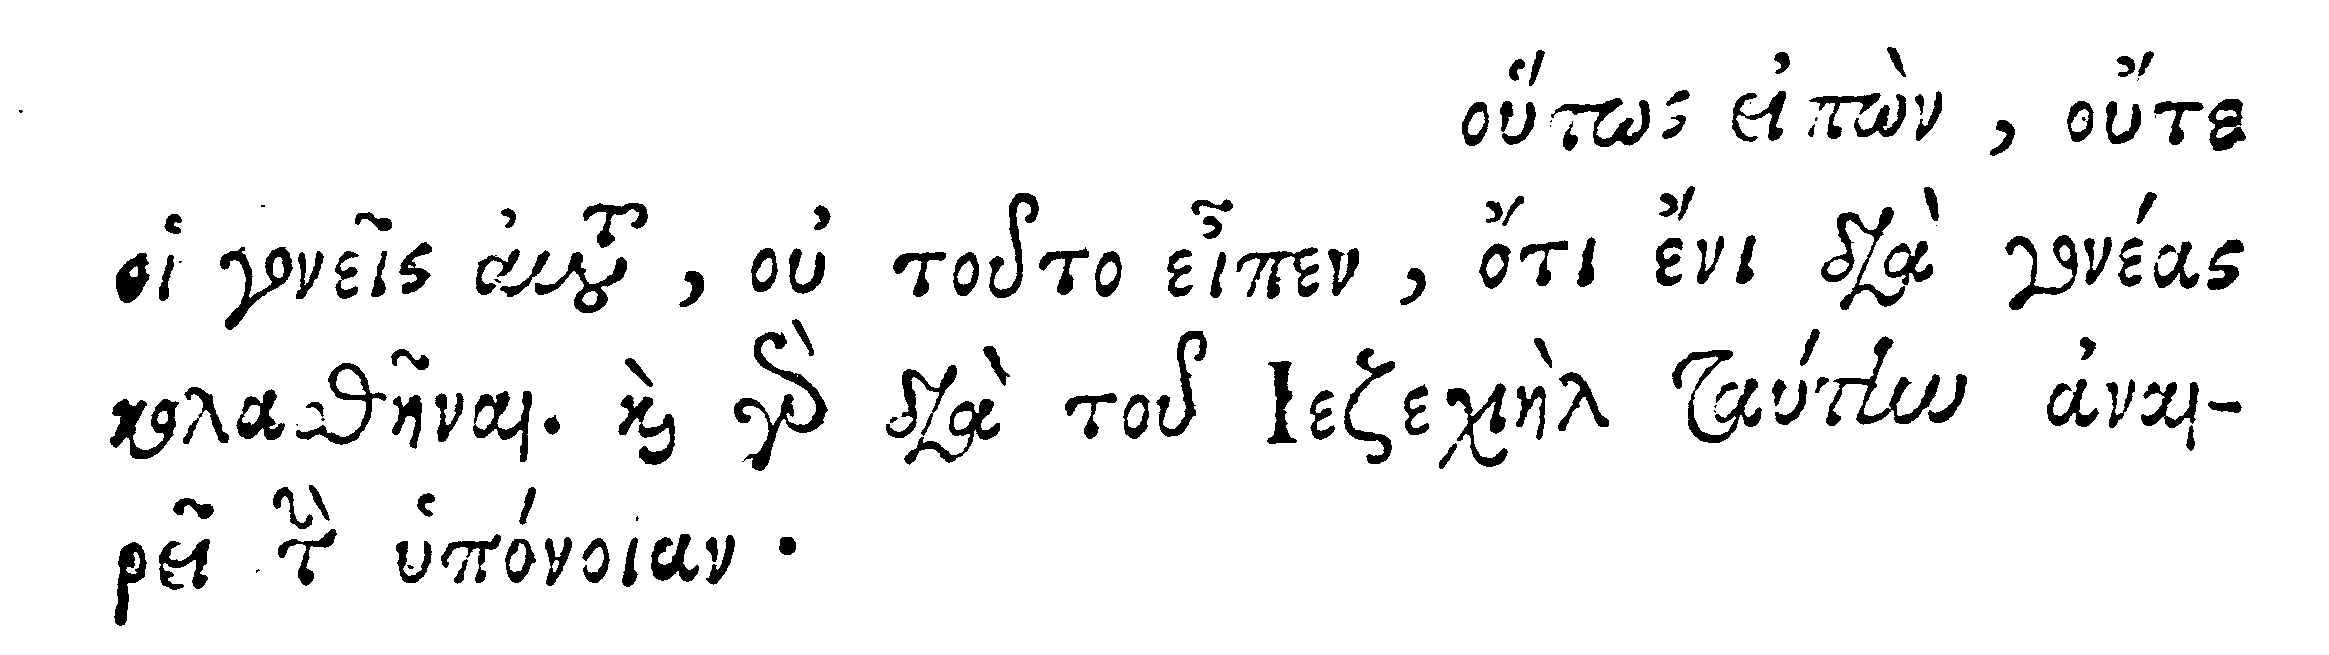 οὕτως εἰπὼν, οὔτε
οἱ γονεῖς αὐτοῦ, οὐ τοῦτο εἶπεν, ὅτι ἔνι διὰ γονέας
κολασθῆναι. καὶ γὰρ διὰ τοῦ Ιεζεχιὴλ ταύτην ἀναι-
ρεῖ τὴν ὑπόνοιαν.